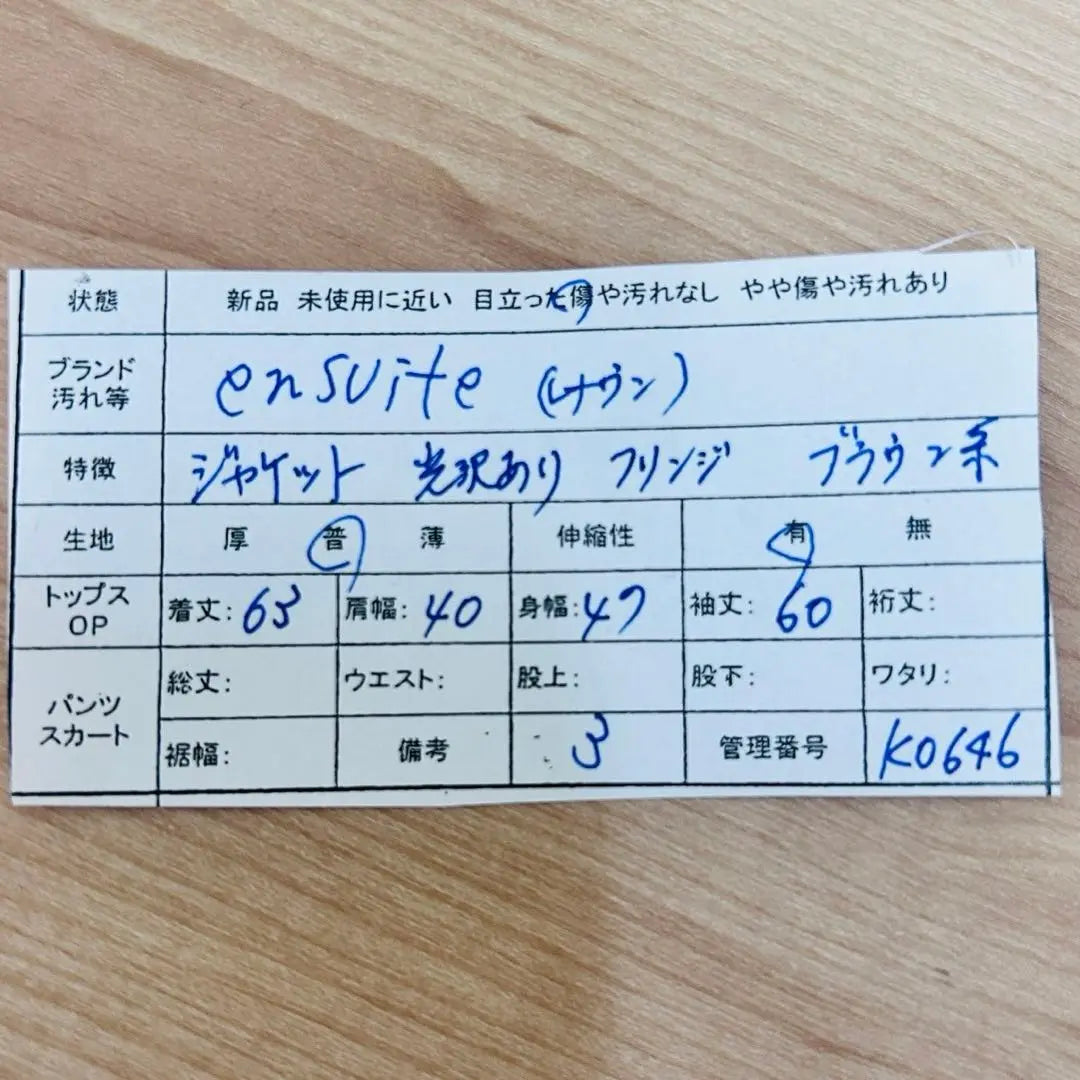 状態 新品 未使用に近い 目立った傷や汚れなし やや傷や汚れあり
ブランド
汚れ等 ensuite (レナウン)
特徴 ジャケット 光沢あり フリンジ ブラウン系
生地 厚 普 薄 伸縮性 有 無
トップス
OP 着丈: 63 肩幅: 40 身幅: 47 袖丈: 60 裄丈:
パンツ
スカート 総丈: ウエスト: 股上: 股下: ワタリ:
裾幅: 備考 3 管理番号 K0646